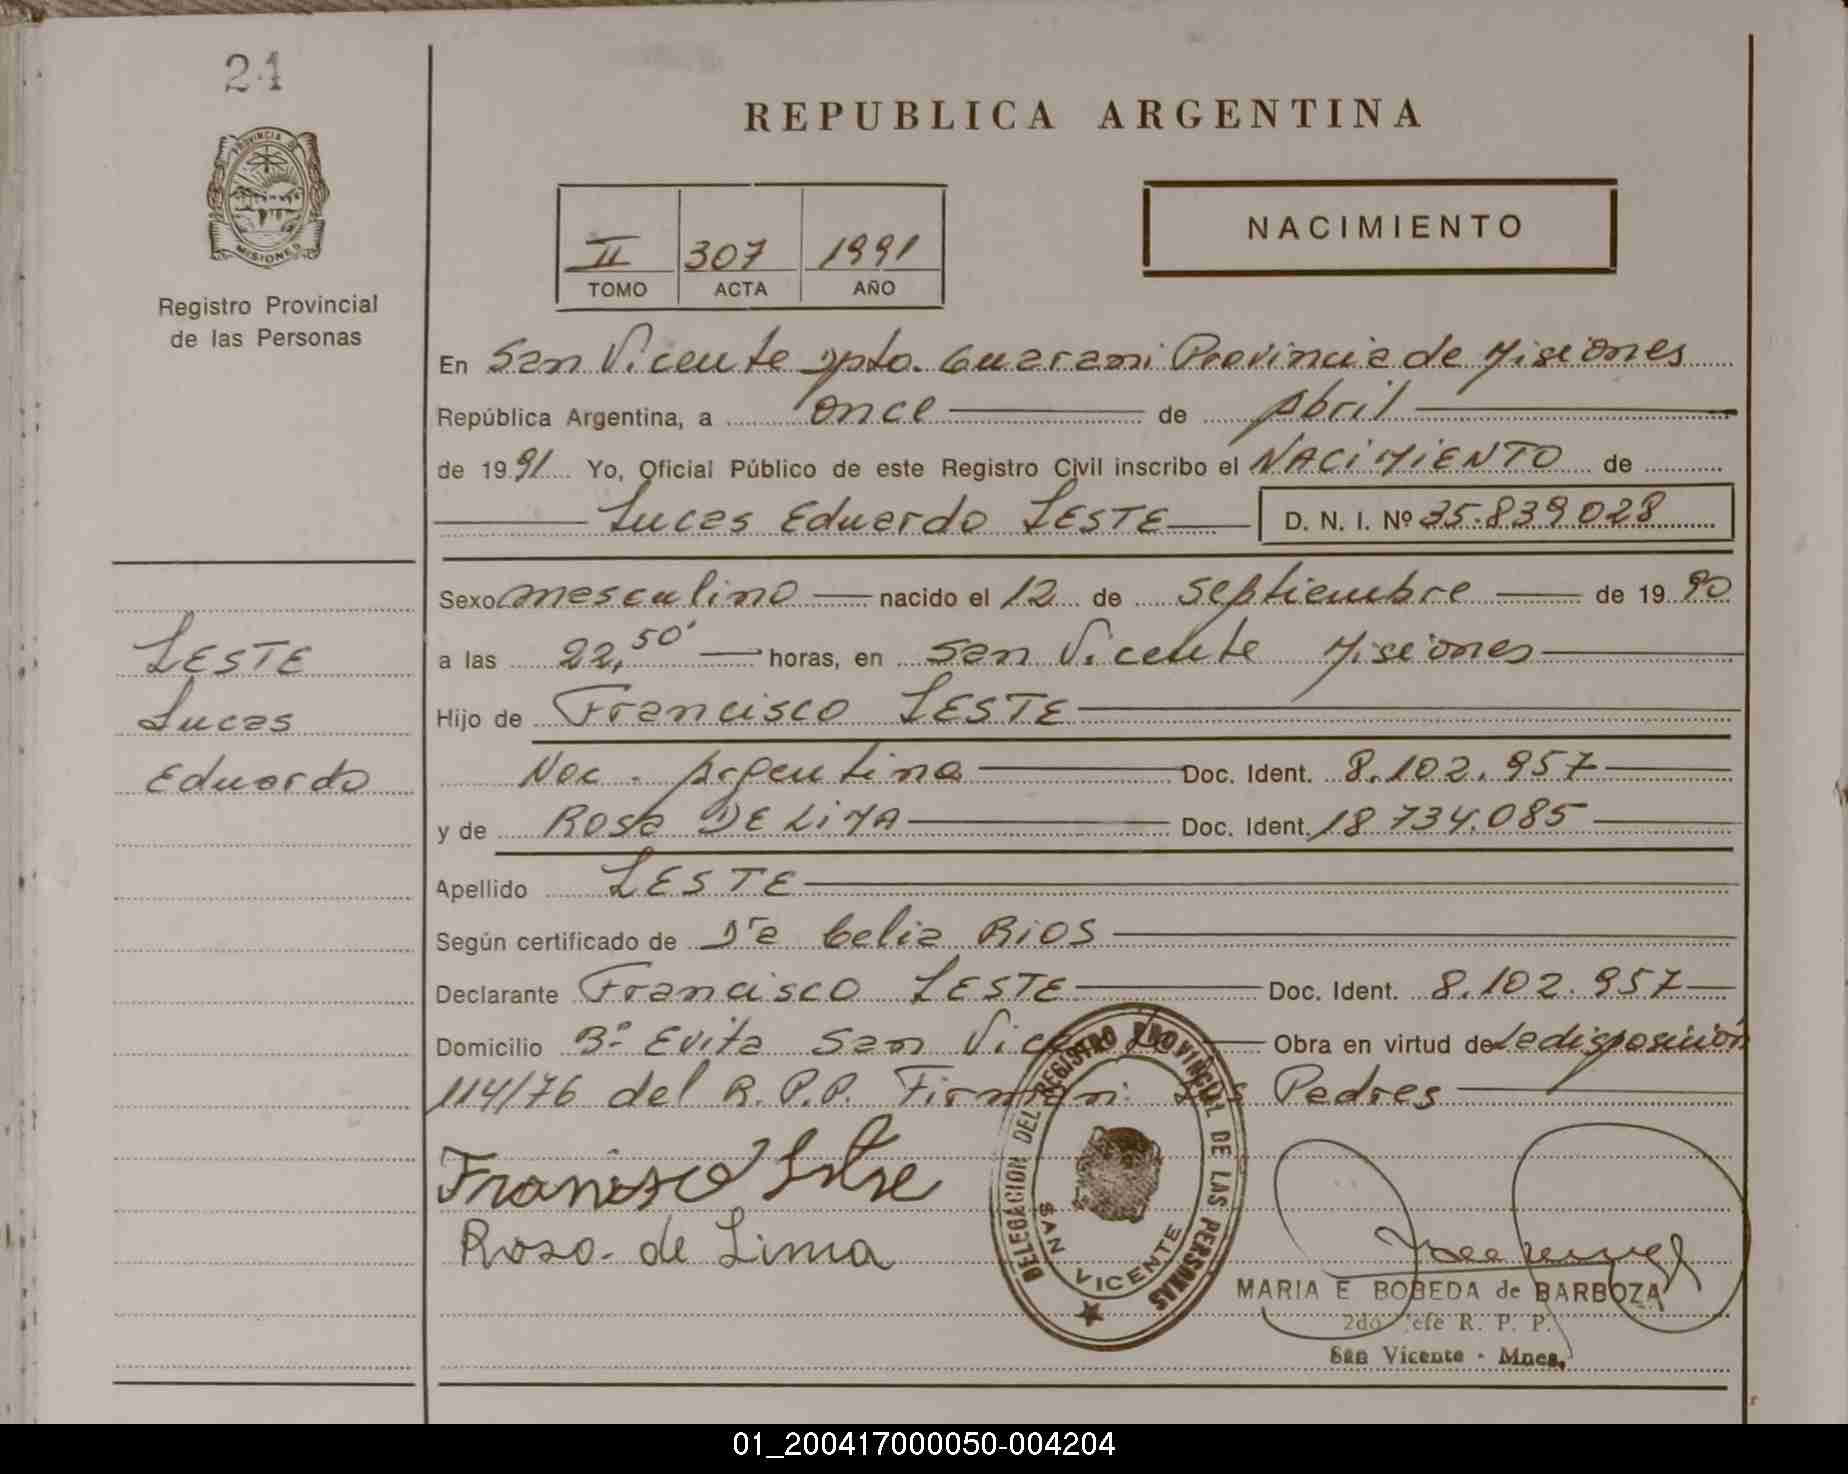 24
PROVINCIA DE
MISIONES
Registro Provincial
de las Personas
REPUBLICA ARGENTINA
II 307 1991
TOMO ACTA AÑO
NACIMIENTO
En San Vicente Dpto. Guarani Provincia de Misiones
República Argentina, a once de Abril
de 1991 Yo, Oficial Público de este Registro Civil inscribo el NACIMIENTO de
Lucas Eduardo LESTE D. N. I. Nº 35.839028
Sexo masculino nacido el 12 de septiembre de 1990
a las 22,50' horas, en San Vicente Misiones
Hijo de Francisco LESTE
Nac. Argentina Doc. Ident. 8.102.957
y de Rosa DE LIMA Doc. Ident. 18734.085
Apellido LESTE
Según certificado de Dra Celia RIOS
Declarante Francisco LESTE Doc. Ident. 8.102.957
Domicilio Bº Evita San Vicente Obra en virtud de La disposición
114/76 del R.P.P. Firman: Los Padres
LESTE
Lucas
Eduardo
Francisco Leste
Rosa de Lima
DELEGACION DEL REGISTRO PROVINCIAL DE LAS PERSONAS
SAN VICENTE
MARIA E BOBEDA de BARBOZA
2do Jefe R. P. P.
San Vicente - Mnes.
01_200417000050-004204